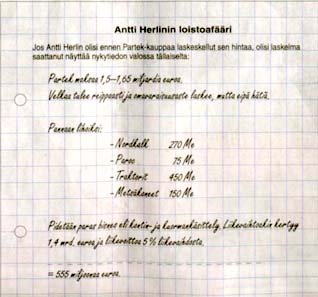 Antti Herlinin loistoafääri
Jos Antti Herlin olisi ennen Partek-kauppaa laskeskellut sen hintaa, olisi laskelma
saattanut näyttää nykytiedon valossa tällaiselta:
Partek maksaa 1,5–1,65 miljardia euroa.
Velkaa tulee reippaasti ja omavaraisuusaste laskee, mutta eipä hätiä.
Pannaan lihoiksi:
- Nordkalk 270 Me
- Paroc 75 Me
- Traktorit 450 Me
- Metsäkoneet 150 Me
Pidetään paras bisnes eli kontin- ja kuormankäsittely. Liikevaihtoakin kertyy
1,4 mrd. euroa ja liikevoittoa 5 % liikevaihdosta.
= 555 miljoonaa euroa.